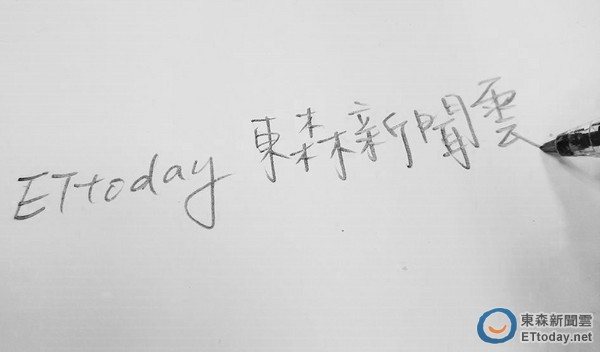 ETtoday 東森新聞雲
東森新聞雲
ETtoday.net